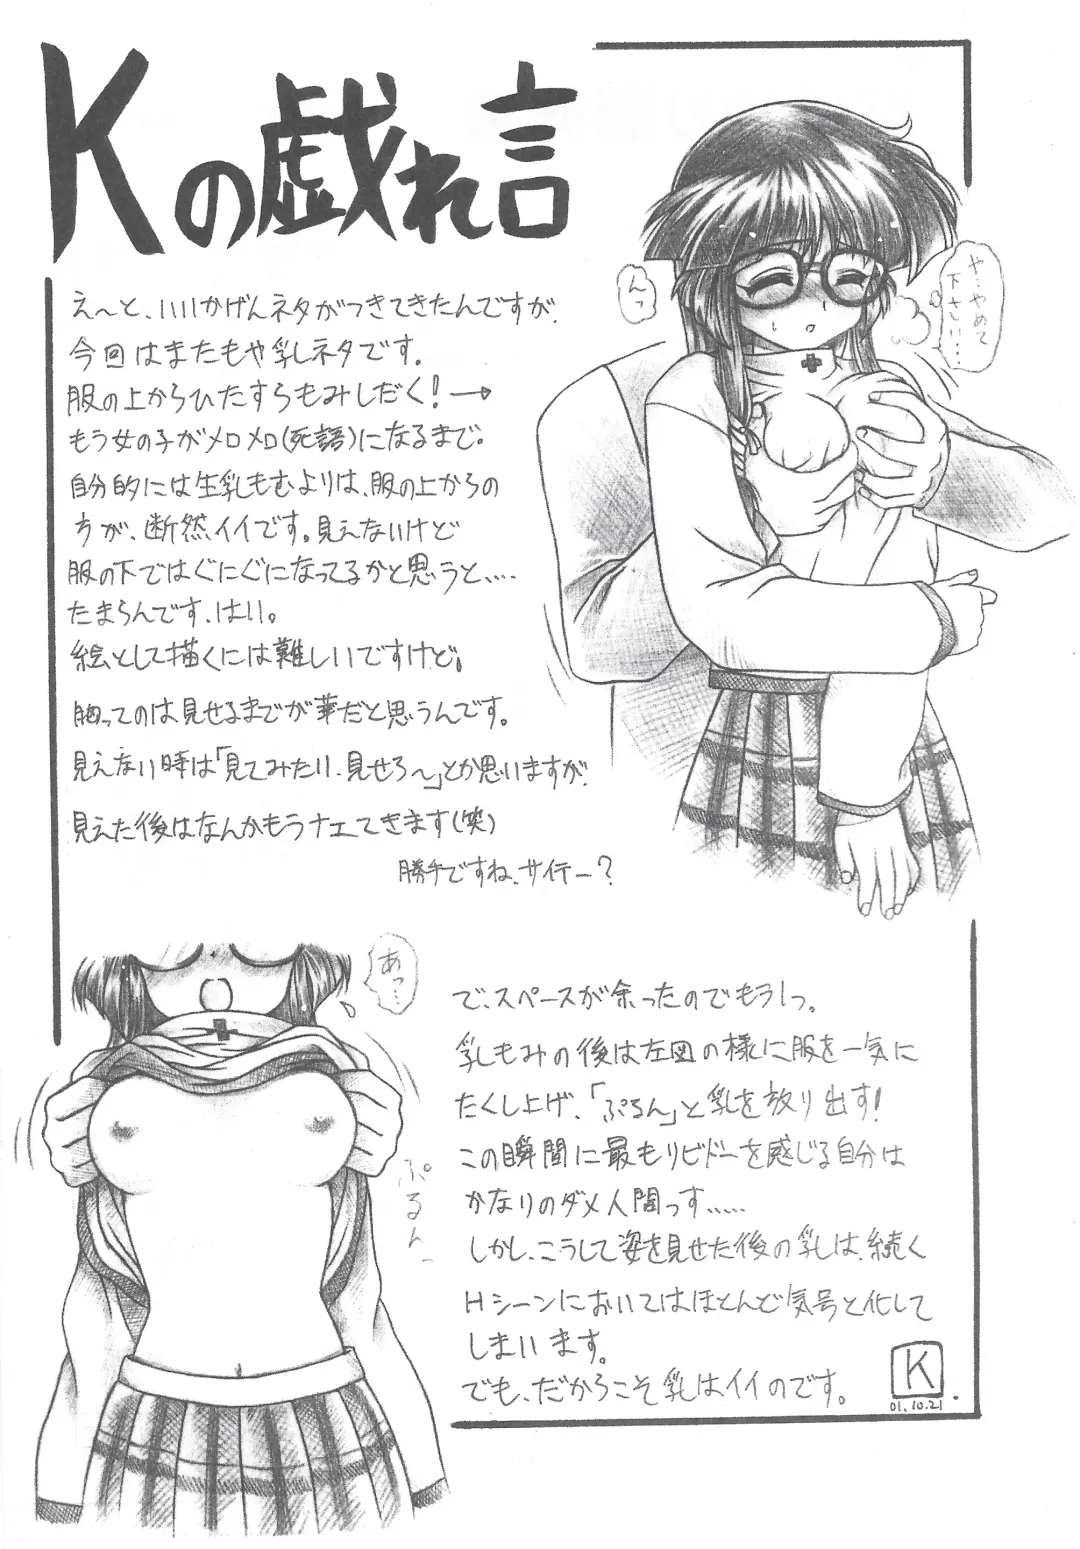 Kの戯れ言
え〜と、いいかげんネタがつきてきたんですが、
今回はまたもや乳しネタです。
服の上からひたすらもみしだく!→
もう女の子がメロメロ(死語)になるまで。
自分的には生乳もむよりは、服の上からの
方が、断然イイです。見えないけど
服の下ではぐにぐになってるかと思うと、…
たまらんです、はい。
絵として描くには難しいですけど。
胸ってのは見せるまでが華だと思うんです。
見えない時は「見てみたい、見せろ〜」とか思いますが、
見えた後はなんかもうナエてきます(笑)
勝手ですね、サイテー?
んっ
や、やめて
下さい…
あっ…
ぷるんっ
で、スペースが余ったのでもう1つ。
乳しもみの後は左図の様に服を一気に
たくし上げ、「ぷるん」と乳を放り出す!
この瞬間に最もリビドーを感じる自分は
かなりのダメ人間っす……
しかし、こうして姿を見せた後の乳は、続く
Hシーンにおいてはほとんど気号と化して
しまいます。
でも、だからこそ乳はイイのです。
K
01.10.21